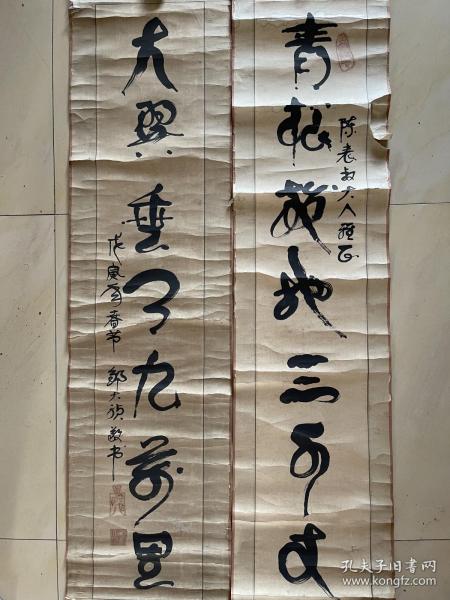 青松拔地三千丈
陈表叔大人雅正
大翼垂天九万里
戊寅年春节 邹大祯敬书
孔夫子旧书网
www.kongfz.com